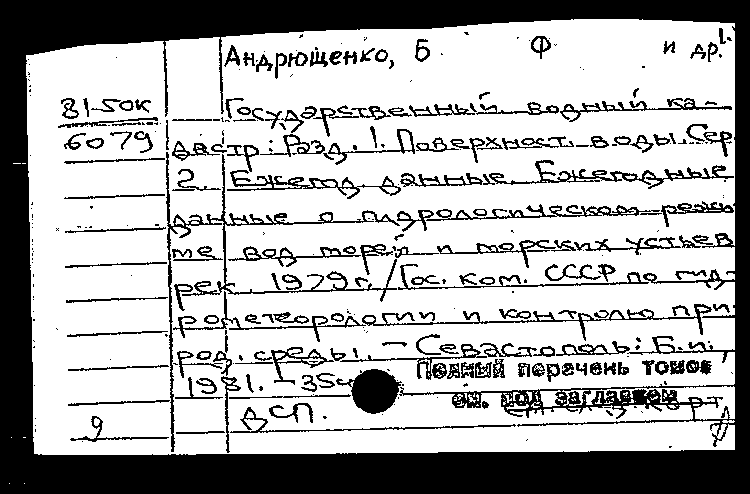 Андрющенко, Б Ф и др. 1.
81-50к
6079
Государственный водный ка-
дастр: Разд. 1. Поверхност. воды. Сер
2. Ежегод. данные. Ежегодные
данные о гидрологическом режи
ме вод морей и морских устьев
рек 1979 г. / Гос. ком. СССР по гид-
рометеорологии и контролю при-
род. среды. – Севастополь: Б.и.,
1981. – 354
Полный перечень томов
см. под заглавием
ДСП.
карт
9